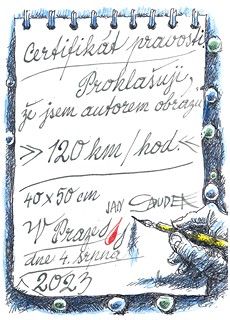 Certifikát pravosti
Prohlašuji,
že jsem autorem obrazu
» 120 km/hod. «
40 x 50 cm
JAN
V Praze
dne 4. srpna
2023